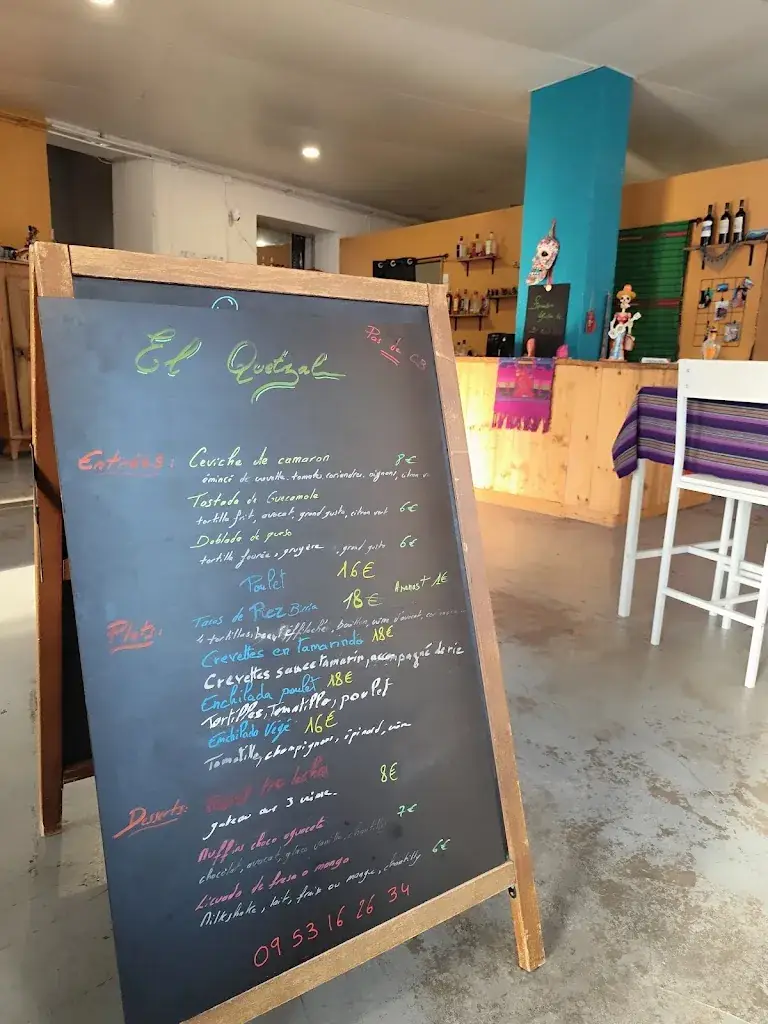 El Quetzal
Pas de CB
Entrées: Ceviche de camaron 8€
émincé de crevette, tomates, coriandre, oignons, citron
Tostada de Guacamole
tortilla frit, avocat, grand gusto, citron vert 6€
Doblada de queso
tortilla fourrée, gruyère, grand gusto 6€
Poulet 16€
Plats: Tacos de Rez Birria 18€ Ananas + 1€
4 tortillas, boeuf effiloché, bouillon
Crevettes en tamarindo 18€
Crevettes sauce tamarin, accompagné de riz
Enchilada poulet 18€
Tortillas, Tomatillo, poulet
Enchilada Végé 16€
Tomatille, champignons, épinard, crème
Desserts: 8€
gateau aux 3
Muffins choco aguacate 7€
chocolat, avocat, glace vanille, chantilly
Licuado de fresa o mango 6€
Milkshake, lait, fraise ou mangue, chantilly
09 53 16 26 34